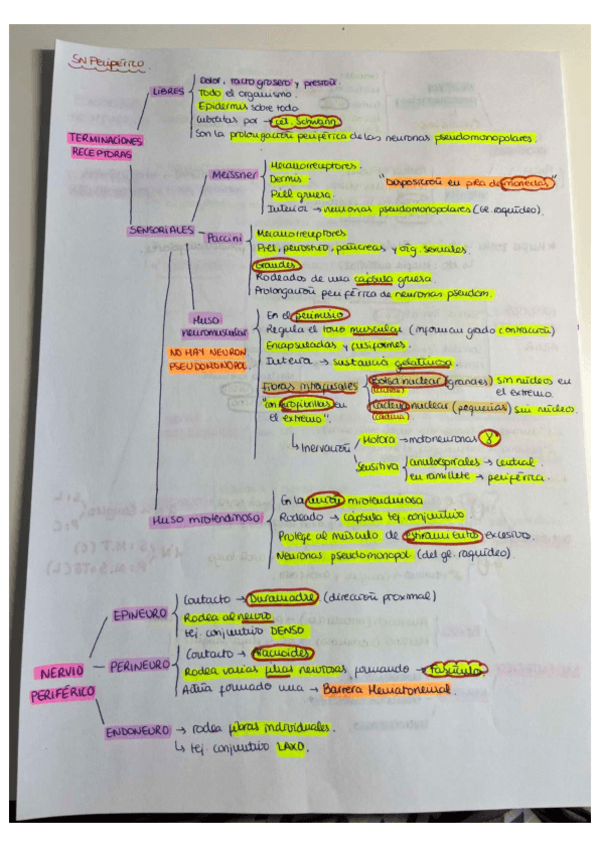 SN Periférico.
TERMINACIONES
RECEPTORAS
LIBRES
Dolor, tacto grosero y presión.
Todo el organismo.
Epidermis sobre todo
Cubiertas por → cél. Schwann.
Son la prolongación periférica de las neuronas pseudomonopolares.
SENSORIALES
Meissner
Mecanorreceptores.
Dermis.
Piel gruesa.
Interior → neuronas pseudomonopolares (gl. raquídeo).
"Disposición en pila de monedas"
Paccini
Mecanorreceptores
Piel, periostio, páncreas y órg. sexuales.
Grandes
Rodeados de una cápsula gruesa.
Prolongación periférica de neuronas pseudom.
Huso
neuromuscular
NO HAY NEURON.
PSEUDOMONOPOL.
En el perimisio
Regula el tono muscular (informan grado contracción)
Encapsuladas y fusiformes.
Interior → sustancia gelatinosa.
Fibras intrafusales
"con miofibrillas en
el extremo".
Bolsa nuclear (grandes) sin núcleos en
el extremo.
Cadena nuclear (pequeñas) sin núcleo.
↳ Inervación
Motora → motoneuronas γ
Sensitiva
anuloespirales → central.
en ramillete → periférica.
Huso miotendinoso
En la unión miotendinosa
Rodeado → cápsula tej. conjuntivo.
Protege al músculo de estiramientos excesivo.
Neuronas pseudomonopol (del gl. raquídeo).
NERVIO
PERIFÉRICO
EPINEURO
Contacto → Duramadre (dirección proximal)
Rodea al nervio
tej. conjuntivo DENSO
PERINEURO
Contacto → Aracnoides
Rodea varias fibras nerviosas, formando → fascículo
Actúa formado una → Barrera Hematoneural.
ENDONEURO → rodea fibras individuales.
↳ tej. conjuntivo LAXO.